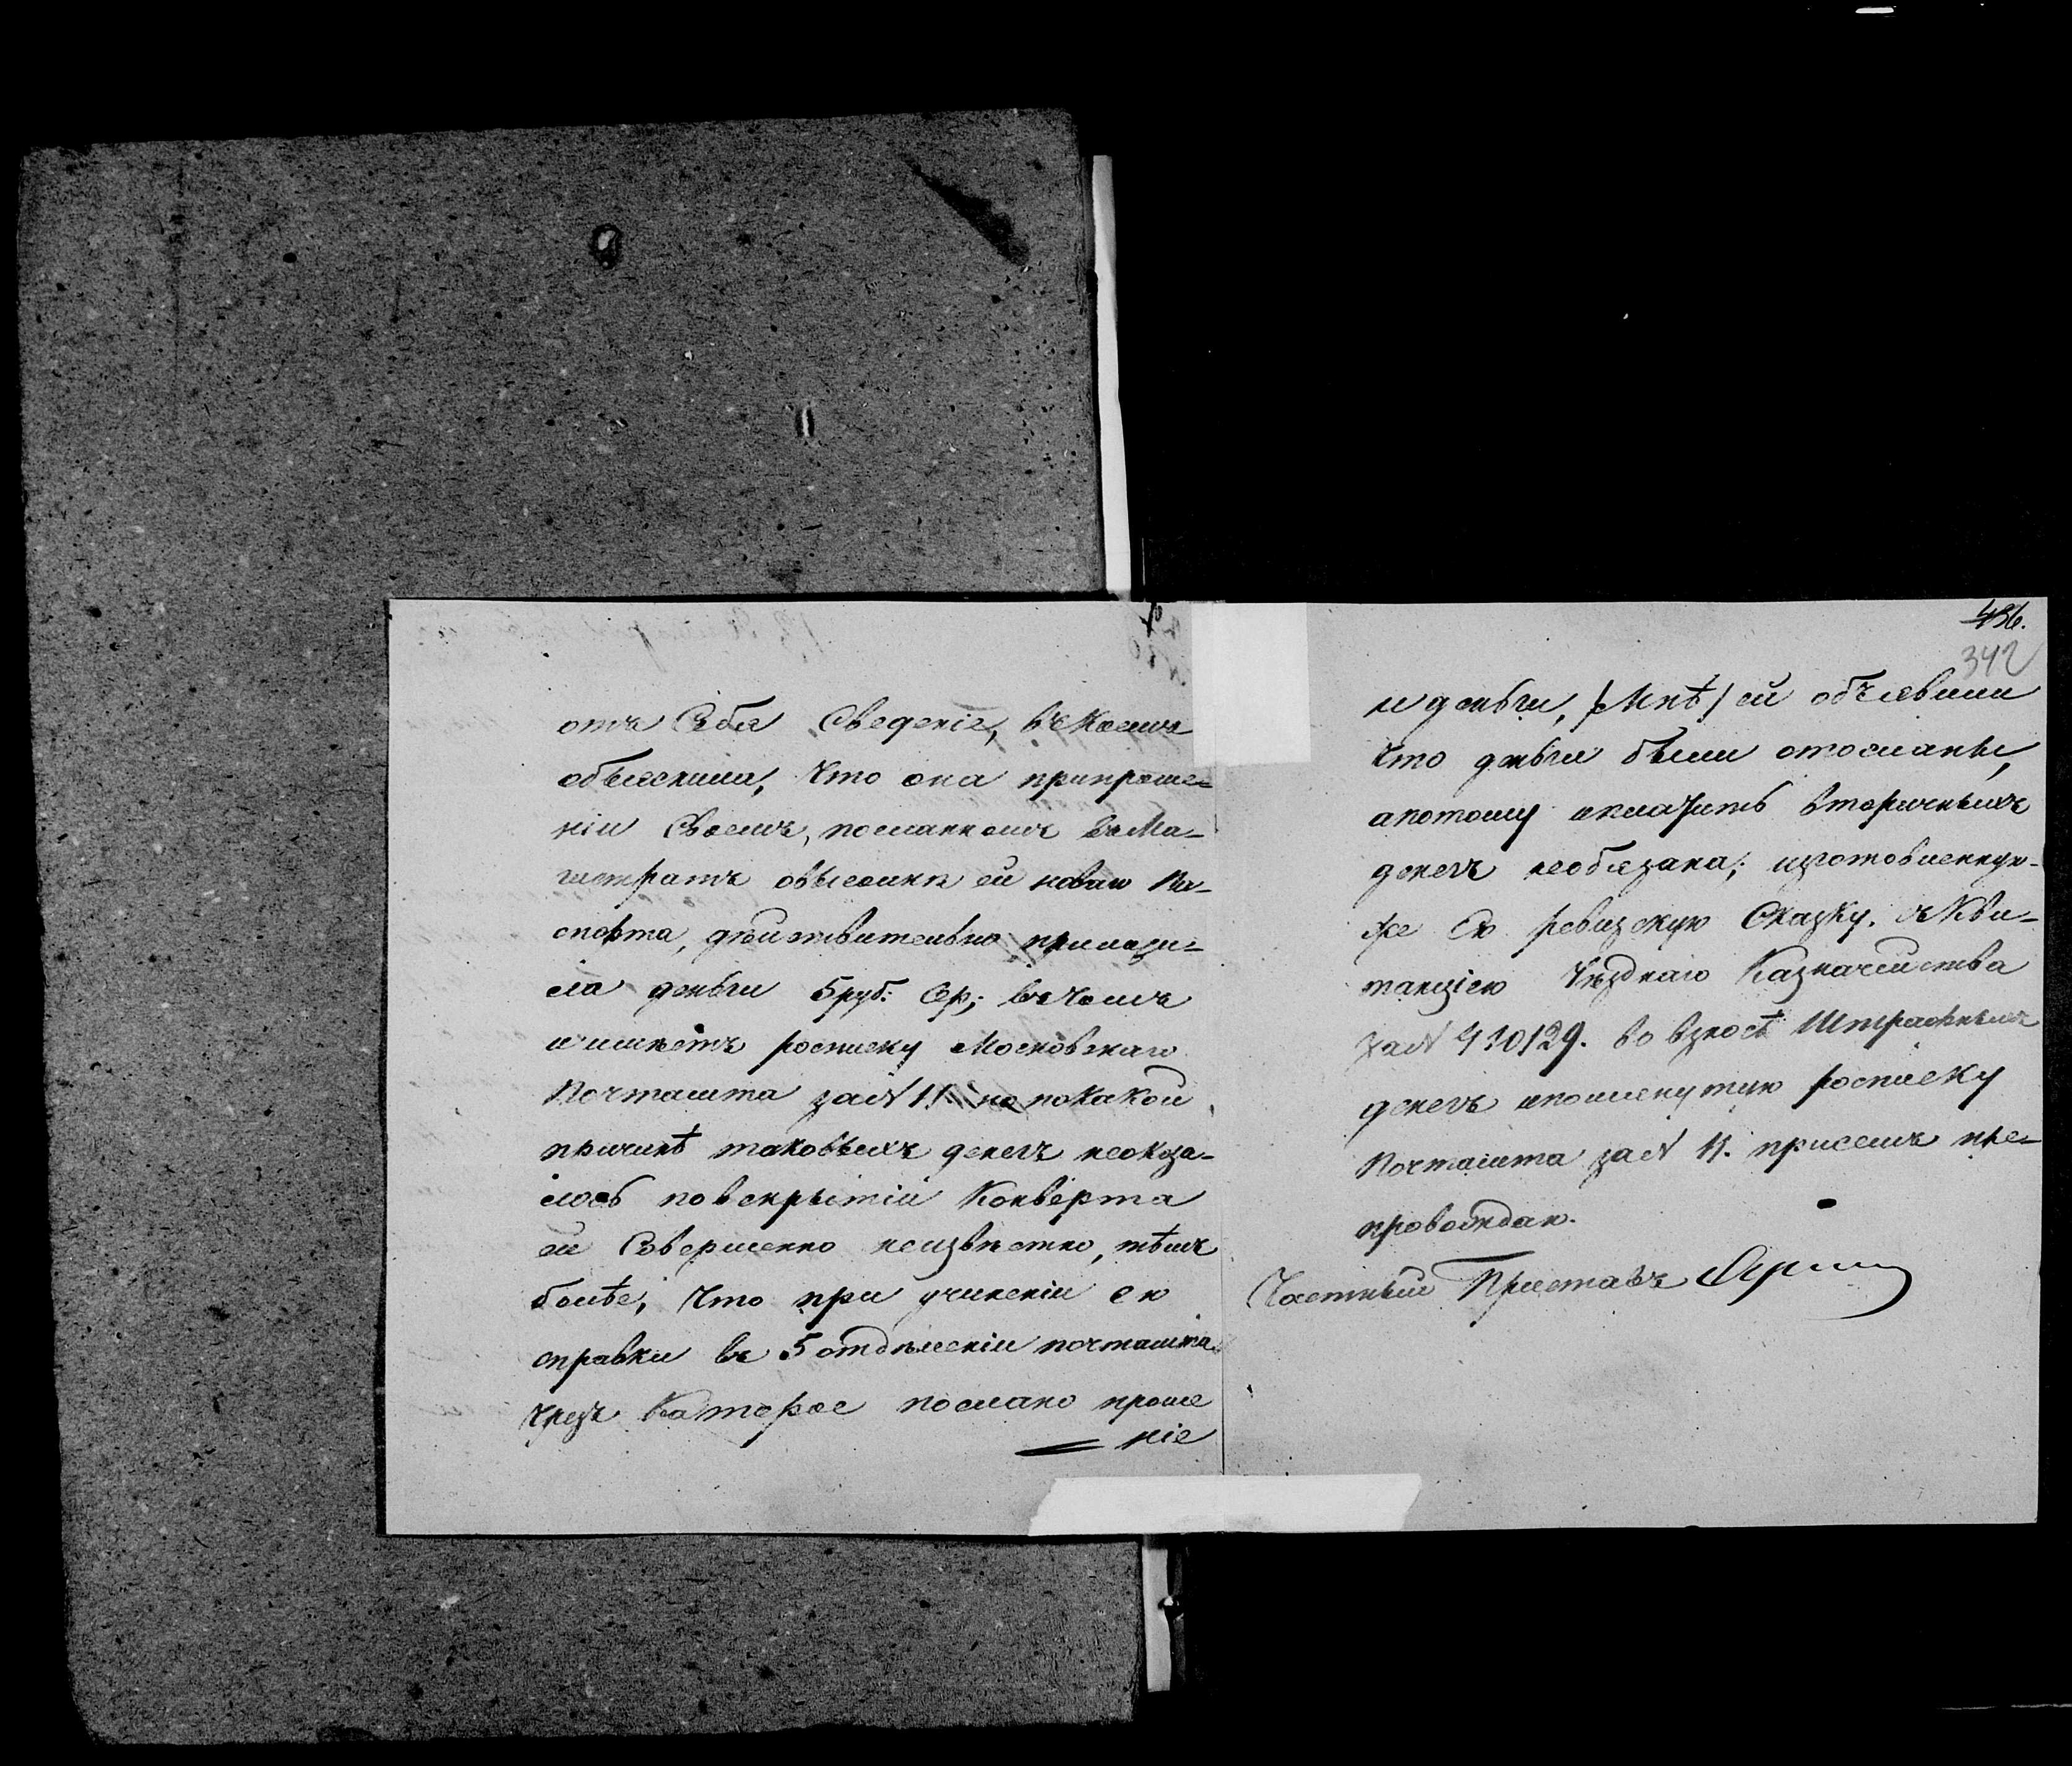 отъ Себя Сведеніе, въ Коемъ
объяснила, что она припроше-
ніи Своемъ, посланномъ въ Ма-
гистратъ овысылкѣ ей новаго Па-
спорта, дѣйствительно прилага-
ла деньги 5 руб: Сер; въ чемъ
и имѣетъ росписку Московскаго
Почтамта за № 11. но покакой
причинѣ таковыхъ денегъ неоказа-
лось повскрытіи Конверта
ей Совершенно неизвѣстно, тѣмъ
болѣе, что при учиненіи ею
справки въ 5 отдѣленіи почтамта
чрезъ Которое послано проше
ніе
436.
342
и деньги, /Мнѣ/ ей объявили
что деньги были отосланы,
апотому и платить вторичныхъ
денегъ необязана; изготовленную-
же Ею ревизскую Сказку, съ Кви-
танціею Уѣзднаго Казначейства
за № 410129. во взносѣ Штрафныхъ
денегъ ипомянутую росписку
Почтамта за № 11. присемъ пре-
провождаю.
Частный Приставъ